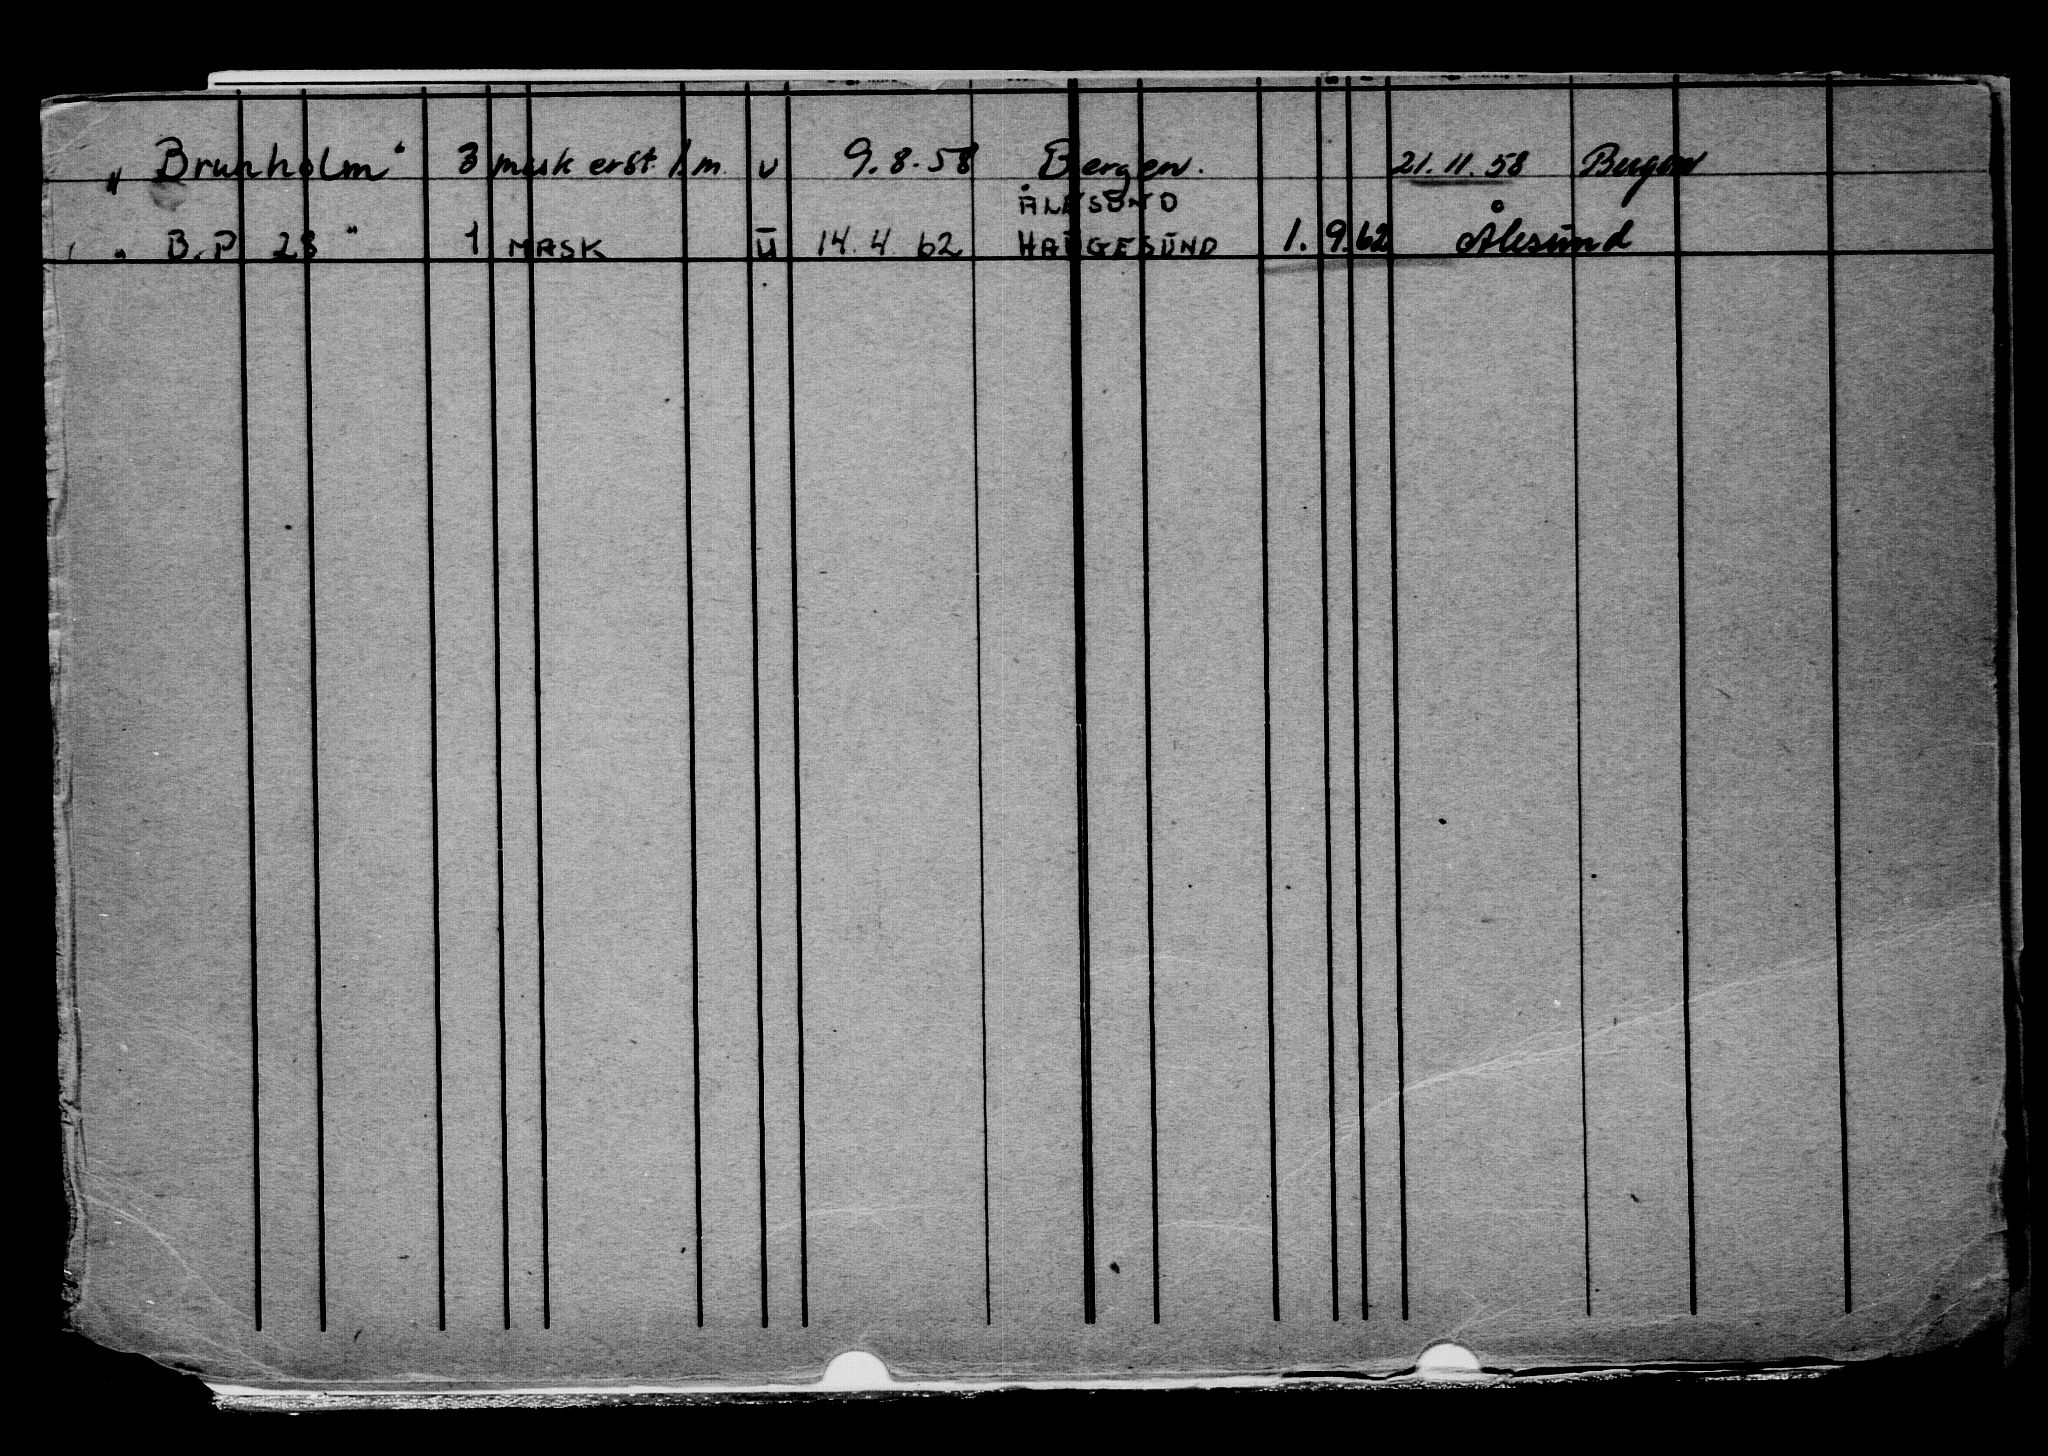 " Brunholm" 3 mask erst. 1. m. u 9. 8. 58 Bergen. 21. 11. 58 Bergen
ÅLESUND
" B.P. 28 " 1 MASK U 14. 4 62 HAUGESUND 1. 9. 62 Ålesund